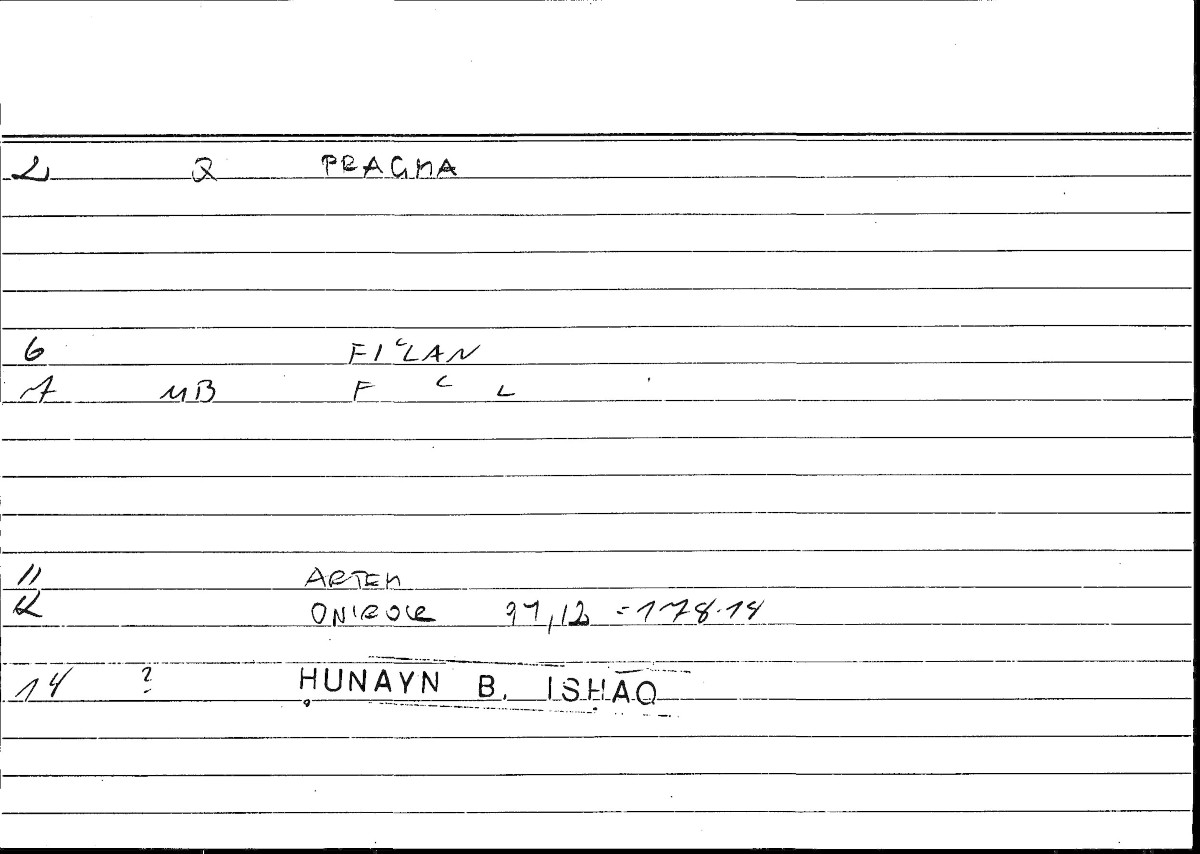 2 Q PRAGMA
6 FIʿLAN
7 MB F ʿ L
11 ARTEM
12 ONIROCR 97,12 = 178.14
14 ? ḤUNAYN B. ISḤĀQ